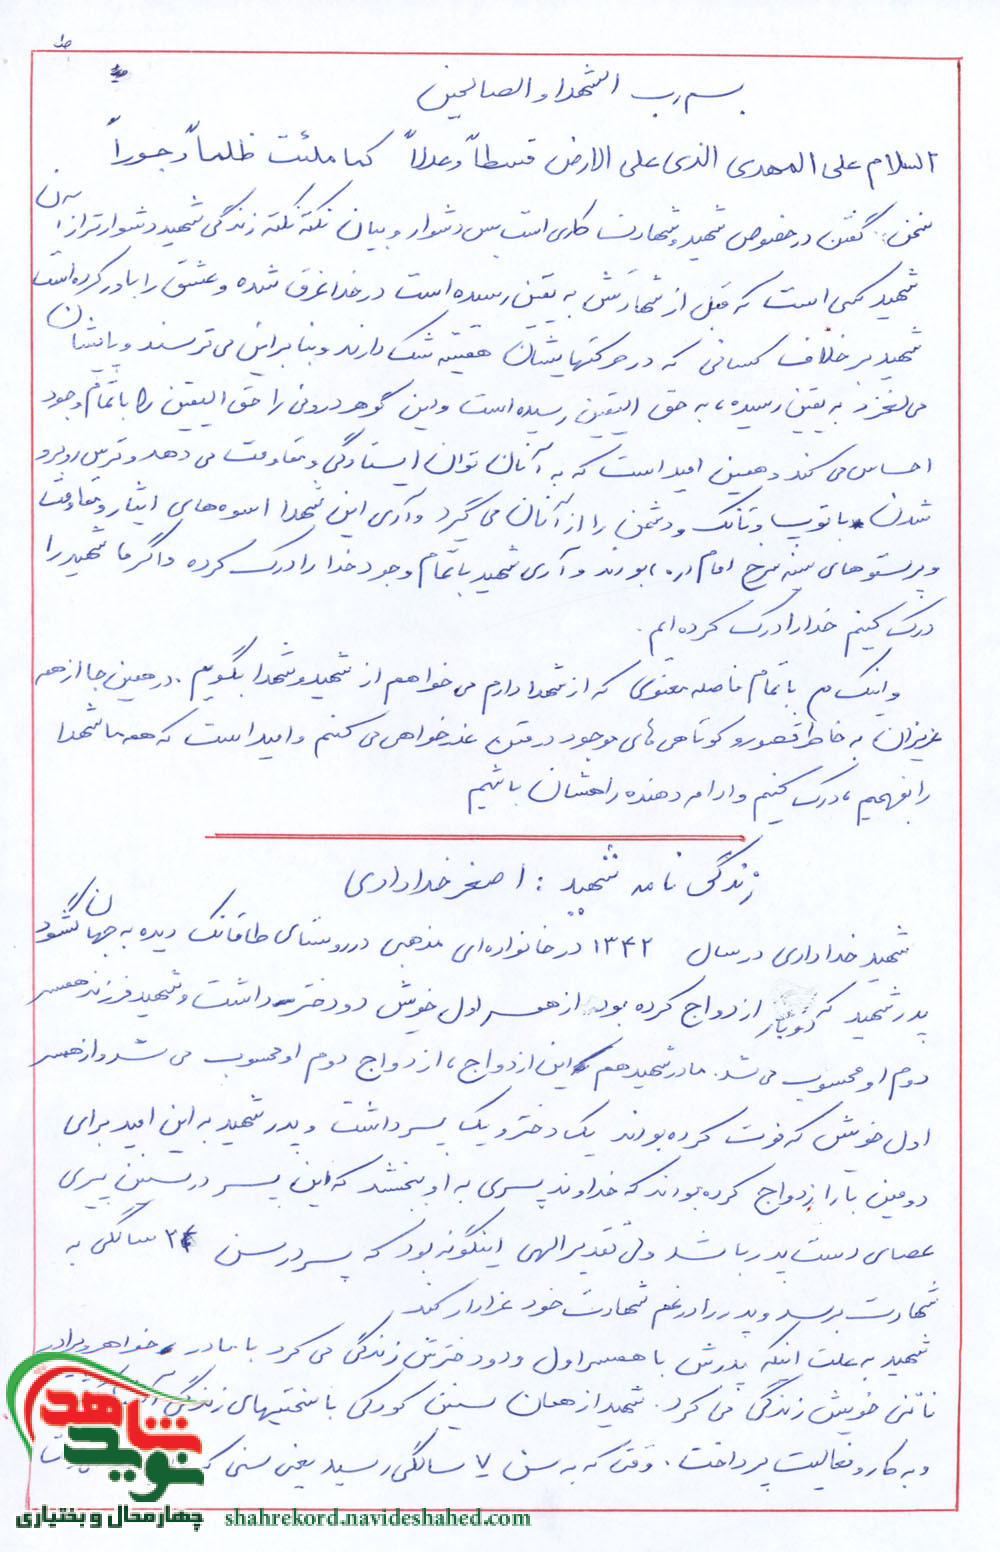 ص۱
بسم رب الشهدا و الصالحین
السلام علی المهدی الذی علی الارض قسطاً و عدلاً کما ملئت ظلماً و جوراً
سخن گفتن در خصوص شهید و شهادت کاری است بس دشوار و بیان نکته نکته زندگی شهید دشوارتر از آن
شهید کسی است که قبل از شهادتش به یقین رسیده است در خدا غرق شده و عشق را باور کرده است
شهید بر خلاف کسانی که در حرکتهایشان همیشه شک دارند و بنابراین می ترسند و پایشان
می لغزد به یقین رسیده، به حق الیقین رسیده است و این گوهر درونی را حق الیقین را با تمام وجود
احساس می کند و همین امید است که به آنان توان ایستادگی و مقاومت می دهد و ترس روبرو
شدن با توپ و تانک و دشمن را از آنان می گیرد و آری این شهدا اسوه های ایثار و مقاومت
و پرستوهای سینه سرخ امام (ره) بودند و آری شهید با تمام وجود خدا را درک کرده و اگر ما شهید را
درک کنیم خدا را درک کرده ایم.
و اینک من با تمام فاصله معنوی که از شهدا دارم می خواهم از شهید و شهدا بگویم. در همین جا از همه
عزیزان به خاطر قصور و کوتاهی های موجود در متن عذرخواهی می کنم و امید است که همه ما شهدا
را بفهمیم، درک کنیم و ادامه دهنده راهشان باشیم
زندگی نامه شهید : اصغر خدادادی
شهید خدادادی در سال ۱۳۴۲ در خانواده ای مذهبی در روستای طاقانک دیده به جهان گشود
پدر شهید که دوبار ازدواج کرده بود از همسر اول خویش دو دختر داشت و شهید فرزند همسر
دوم او محسوب می شد. مادر شهید هم این ازدواج، ازدواج دوم او محسوب می شد و از همسر
اول خویش که فوت کرده بودند یک دختر و یک پسر داشت و پدر شهید به این امید برای
دومین بار ازدواج کرده بودند که خداوند پسری به او ببخشد که این پسر در سنین پیری
عصای دست پدر باشد ولی تقدیر الهی اینگونه بود که پسر در سن سالگی به
شهادت برسد و پدر را در غم شهادت خود عزادار کند
شهید به علت اینکه پدرش با همسر اول و دو دخترش زندگی می کرد با مادر و خواهر و برادر
ناتنی خویش زندگی می کرد. شهید از همان سنین کودکی با سختیهای زندگی
و به کار و فعالیت پرداخت. وقتی که به سن ۷ سالگی رسید یعنی سنی که
نوید شاهد
چهارمحال و بختیاری
shahrekord.navideshahed.com